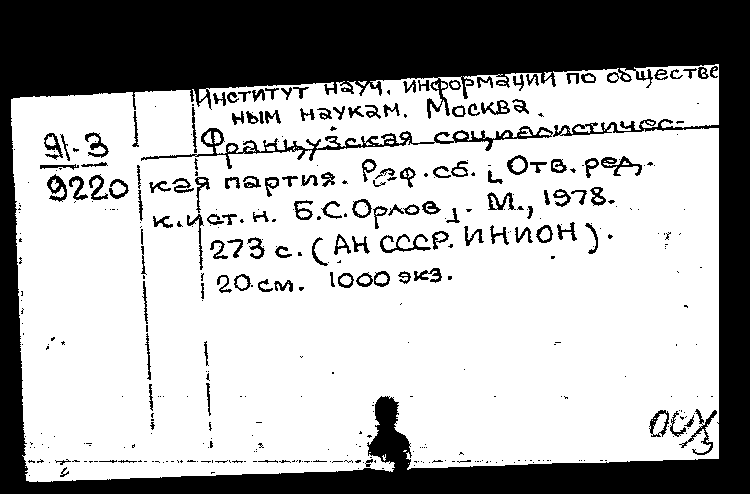 Институт науч. информации по обществе
ным наукам. Москва.
Французская социалистичес-
кая партия. Реф. сб. [Отв. ред.
к.ист.н. Б.С.Орлов]. М., 1978.
273 с. (АН СССР. ИНИОН).
20 см. 1000 экз.
9220